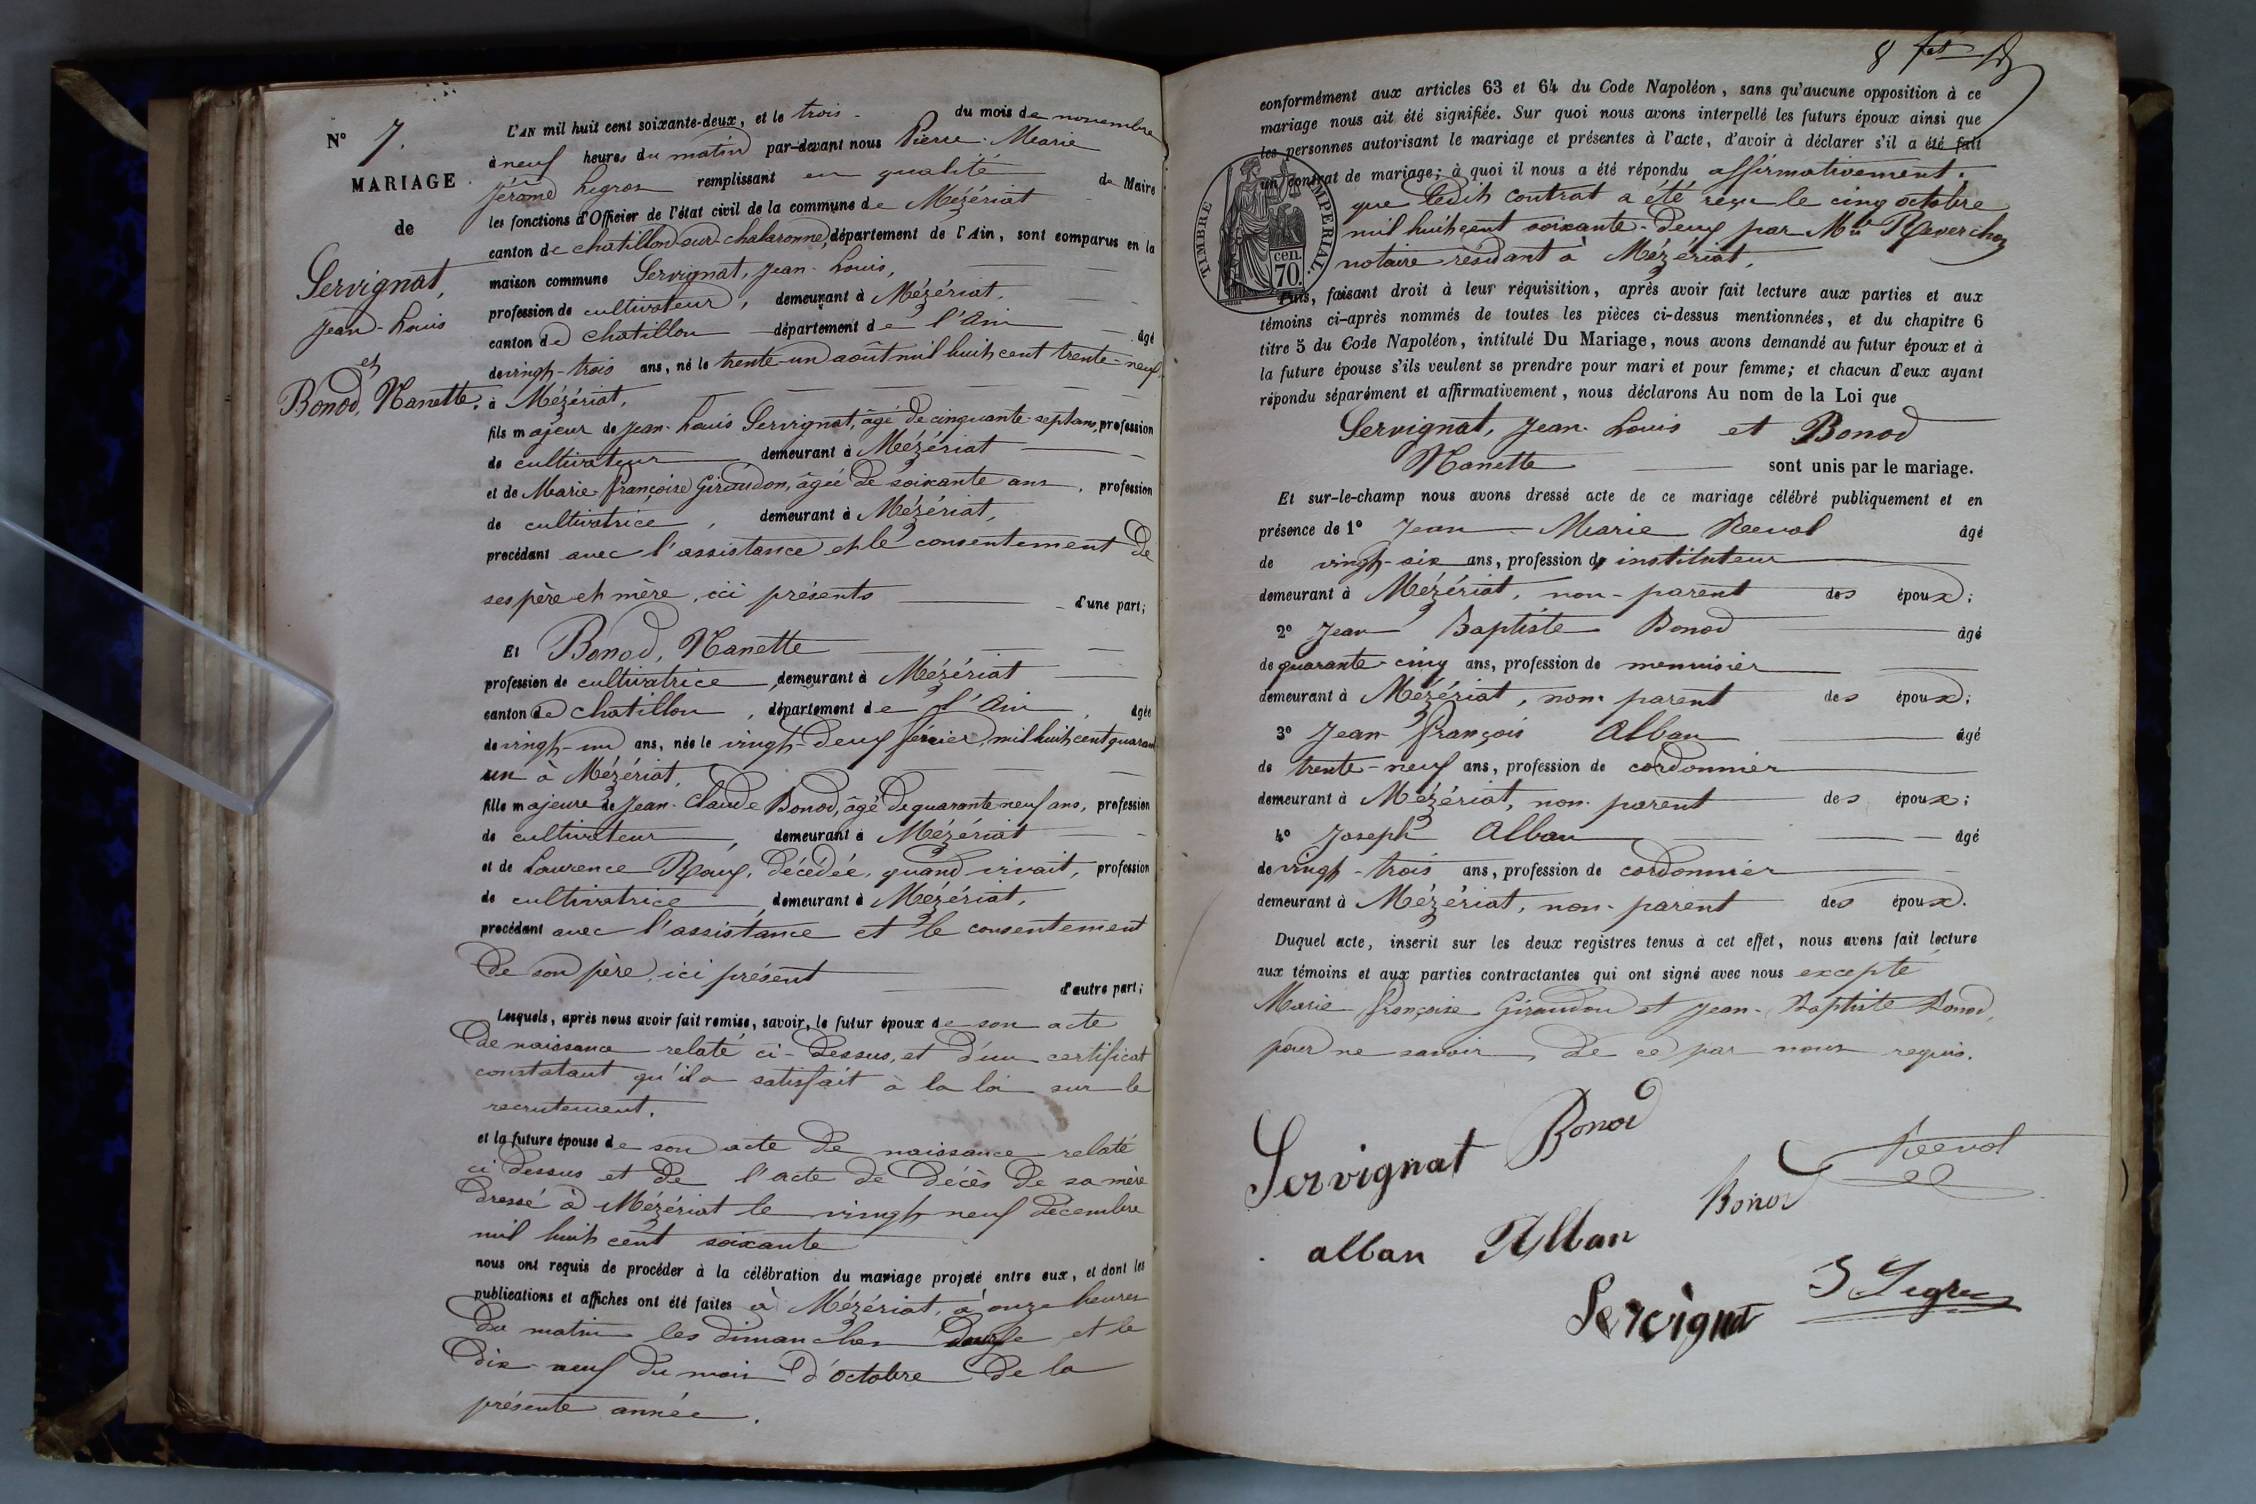 N° 7.
MARIAGE
de
Servignat,
Jean-Louis
et
Bonod, Nanette.
L'AN mil huit cent soixante-deux, et le trois du mois de novembre
à neuf heures du matin par-devant nous Pierre-Marie
Jérome Legros remplissant en qualité de Maire
les fonctions d'Officier de l'état civil de la commune de Mézériat
canton de chatillon sur chalaronne, département de l'Ain, sont comparus en la
maison commune Servignat, Jean-Louis,
profession de cultivateur, demeurant à Mézériat,
canton de chatillon département de l'Ain âgé
de vingt-trois ans, né le trente-un août mil huit cent trente-neuf
à Mézériat,
fils majeur de Jean-Louis Servignat, âgé de cinquante-sept ans, profession
de cultivateur demeurant à Mézériat
et de Marie Françoise Giraudon, âgée de soixante ans, profession
de cultivatrice, demeurant à Mézériat,
procédant avec l'assistance et le consentement de
ses père et mère, ici présents d'une part;
Et Bonod, Nanette
profession de cultivatrice, demeurant à Mézériat
canton de chatillon, département de l'Ain, âgée
de vingt-un ans, née le vingt-deux février mil huit cent quarante
un à Mézériat,
fille majeure de Jean-Claude Bonod, âgé de quarante neuf ans, profession
de cultivateur, demeurant à Mézériat
et de Laurence Roux, décédée, quand vivait, profession
de cultivatrice, demeurant à Mézériat,
procédant avec l'assistance et le consentement
de son père, ici présent d'autre part;
Lesquels, après nous avoir fait remise, savoir, le futur époux de son acte
de naissance relaté ci-dessus, et d'un certificat
constatant qu'il a satisfait à la loi sur le
recrutement.
et la future épouse de son acte de naissance relaté
ci dessus et de l'acte de décès de sa mère
dressé à Mézériat le vingt neuf décembre
mil huit cent soixante
nous ont requis de procéder à la célébration du mariage projeté entre eux, et dont les
publications et affiches ont été faites à Mézériat, à onze heures
du matin les dimanches douze et le
dix-neuf du mois d'octobre de la
présente année.
8
conformément aux articles 63 et 64 du Code Napoléon, sans qu'aucune opposition à ce
mariage nous ait été signifiée. Sur quoi nous avons interpellé les futurs époux ainsi que
les personnes autorisant le mariage et présentes à l'acte, d'avoir à déclarer s'il a été fait
un contrat de mariage; à quoi il nous a été répondu affirmativement.
que ledit contrat a été reçu le cinq octobre
mil huit cent soixante-deux par Me Reverchon
notaire résidant à Mézériat,
TIMBRE IMPERIAL.
70 cen.
Puis, faisant droit à leur réquisition, après avoir fait lecture aux parties et aux
témoins ci-après nommés de toutes les pièces ci-dessus mentionnées, et du chapitre 6
titre 5 du Code Napoléon, intitulé Du Mariage, nous avons demandé au futur époux et à
la future épouse s'ils veulent se prendre pour mari et pour femme; et chacun d'eux ayant
répondu séparément et affirmativement, nous déclarons Au nom de la Loi que
Servignat, Jean-Louis et Bonod
Nanette sont unis par le mariage.
Et sur-le-champ nous avons dressé acte de ce mariage célébré publiquement et en
présence de 1° Jean-Marie Revol âgé
de vingt-six ans, profession de instituteur
demeurant à Mézériat, non-parent des époux;
2° Jean Baptiste Bonod âgé
de quarante-cinq ans, profession de menuisier
demeurant à Mézériat, non-parent des époux;
3° Jean-François Alban âgé
de trente-neuf ans, profession de cordonnier
demeurant à Mézériat, non-parent des époux;
4° Joseph Alban âgé
de vingt-trois ans, profession de cordonnier
demeurant à Mézériat, non-parent des époux.
Duquel acte, inscrit sur les deux registres tenus à cet effet, nous avons fait lecture
aux témoins et aux parties contractantes qui ont signé avec nous excepté
Marie-Françoise Giraudon et Jean-Baptiste Bonod,
pour ne savoir, de ce par nous requis.
Servignat Bonod
Revol
alban Alban Bonod
Servignat J Legros